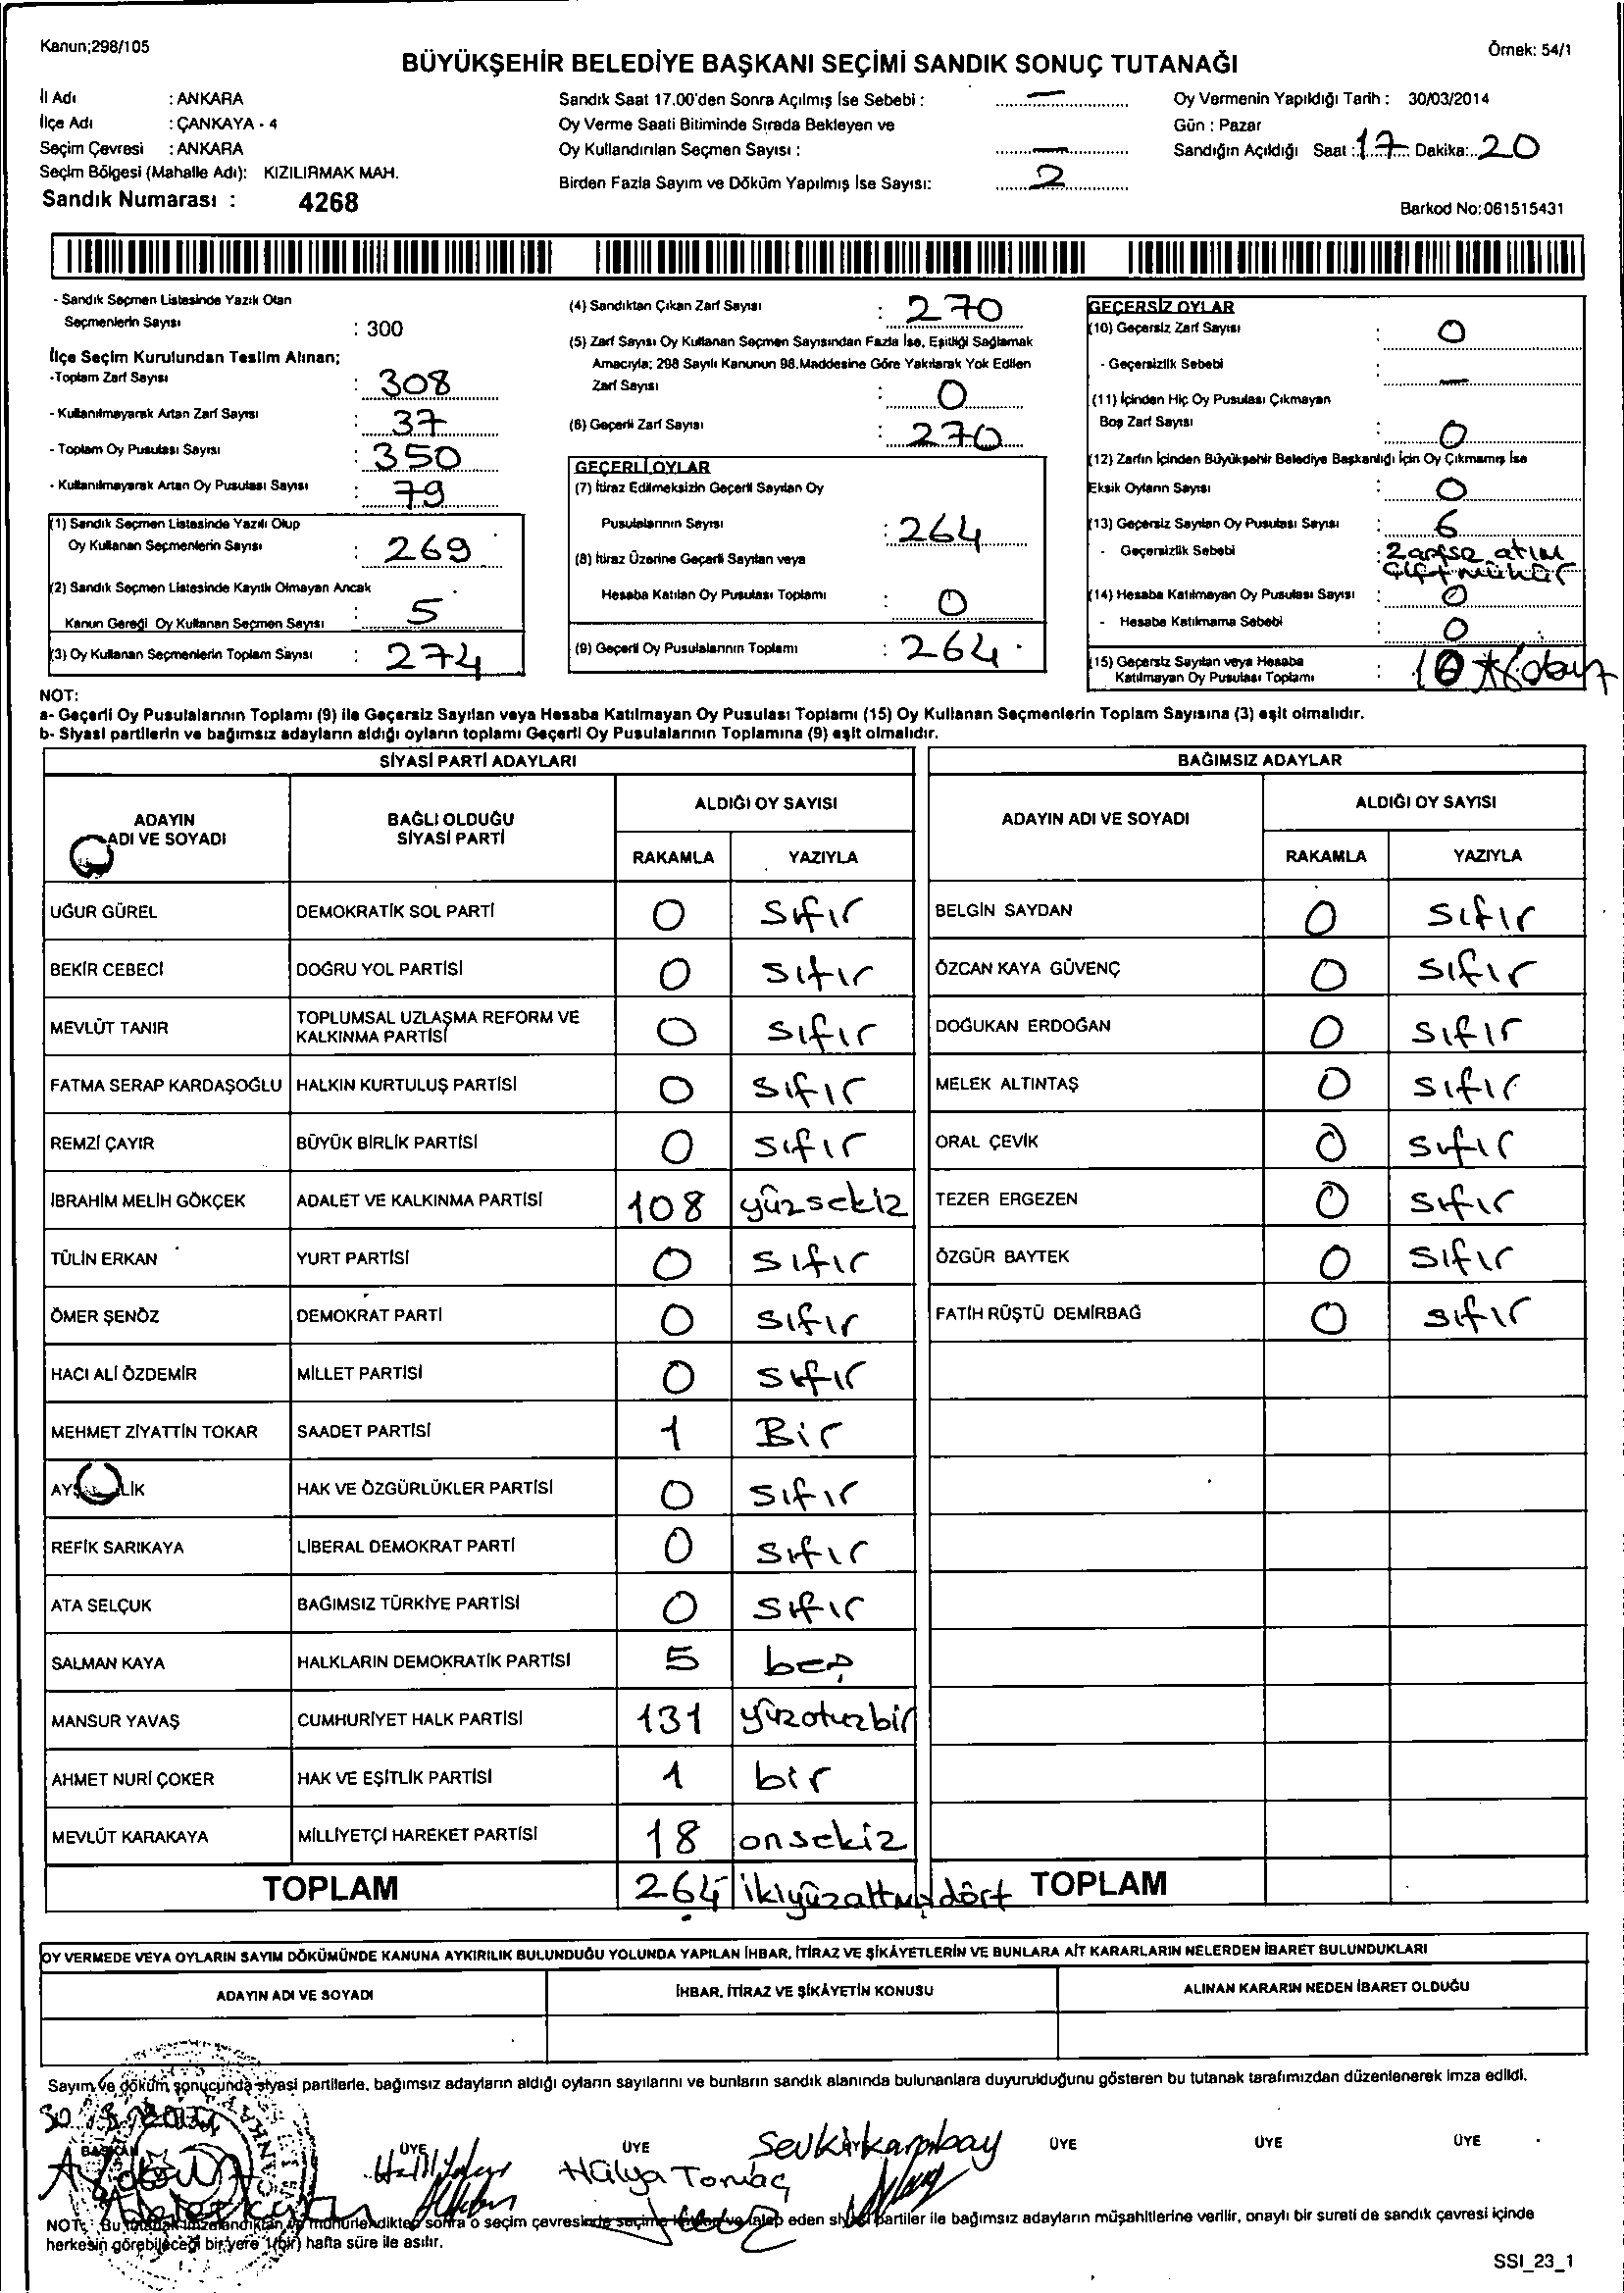 Kanun;298/105
Örnek: 54/1
BÜYÜKŞEHİR BELEDİYE BAŞKANI SEÇİMİ SANDIK SONUÇ TUTANAĞI
İl Adı : ANKARA
İlçe Adı : ÇANKAYA - 4
Seçim Çevresi : ANKARA
Seçim Bölgesi (Mahalle Adı): KIZILIRMAK MAH.
Sandık Numarası : 4268
Sandık Saat 17.00'den Sonra Açılmış İse Sebebi : —
Oy Verme Saati Bitiminde Sırada Bekleyen ve
Oy Kullandırılan Seçmen Sayısı : —
Birden Fazla Sayım ve Döküm Yapılmış İse Sayısı: 2
Oy Vermenin Yapıldığı Tarih : 30/03/2014
Gün : Pazar
Sandığın Açıldığı Saat : 17 Dakika: 20
Barkod No:061515431
- Sandık Seçmen Listesinde Yazılı Olan
Seçmenlerin Sayısı : 300
İlçe Seçim Kurulundan Teslim Alınan;
-Toplam Zarf Sayısı : 308
- Kullanılmayarak Artan Zarf Sayısı : 37
- Toplam Oy Pusulası Sayısı : 350
- Kullanılmayarak Artan Oy Pusulası Sayısı : 79
(1) Sandık Seçmen Listesinde Yazılı Olup
Oy Kullanan Seçmenlerin Sayısı : 269
(2) Sandık Seçmen Listesinde Kayıtlı Olmayan Ancak
Kanun Gereği Oy Kullanan Seçmen Sayısı : 5
(3) Oy Kullanan Seçmenlerin Toplam Sayısı : 274
(4) Sandıktan Çıkan Zarf Sayısı : 270
(5) Zarf Sayısı Oy Kullanan Seçmen Sayısından Fazla İse, Eşitliği Sağlamak
Amacıyla; 298 Sayılı Kanunun 98.Maddesine Göre Yakılarak Yok Edilen
Zarf Sayısı : 0
(6) Geçerli Zarf Sayısı : 270
GEÇERLİ OYLAR
(7) İtiraz Edilmeksizin Geçerli Sayılan Oy
Pusulalarının Sayısı : 264
(8) İtiraz Üzerine Geçerli Sayılan veya
Hesaba Katılan Oy Pusulası Toplamı : 0
(9) Geçerli Oy Pusulalarının Toplamı : 264
GEÇERSİZ OYLAR
(10) Geçersiz Zarf Sayısı : 0
- Geçersizlik Sebebi : —
(11) İçinden Hiç Oy Pusulası Çıkmayan
Boş Zarf Sayısı : 0
(12) Zarfın İçinden Büyükşehir Belediye Başkanlığı İçin Oy Çıkmamış İse
Eksik Oyların Sayısı : 0
(13) Geçersiz Sayılan Oy Pusulası Sayısı : 6
- Geçersizlik Sebebi :
çift mühür
(14) Hesaba Katılmayan Oy Pusulası Sayısı : 0
- Hesaba Katılmama Sebebi : 0
(15) Geçersiz Sayılan veya Hesaba
Katılmayan Oy Pusulası Toplamı :
NOT:
a- Geçerli Oy Pusulalarının Toplamı (9) ile Geçersiz Sayılan veya Hesaba Katılmayan Oy Pusulası Toplamı (15) Oy Kullanan Seçmenlerin Toplam Sayısına (3) eşit olmalıdır.
b- Siyasi partilerin ve bağımsız adayların aldığı oyların toplamı Geçerli Oy Pusulalarının Toplamına (9) eşit olmalıdır.
SİYASİ PARTİ ADAYLARI
BAĞIMSIZ ADAYLAR
ADAYIN ADI VE SOYADI
BAĞLI OLDUĞU SİYASİ PARTİ
ALDIĞI OY SAYISI
RAKAMLA YAZIYLA
ADAYIN ADI VE SOYADI
ALDIĞI OY SAYISI
RAKAMLA YAZIYLA
UĞUR GÜREL DEMOKRATİK SOL PARTİ 0 Sıfır BELGİN SAYDAN 0 Sıfır
BEKİR CEBECİ DOĞRU YOL PARTİSİ 0 Sıfır ÖZCAN KAYA GÜVENÇ 0 Sıfır
MEVLÜT TANIR TOPLUMSAL UZLAŞMA REFORM VE KALKINMA PARTİSİ 0 Sıfır DOĞUKAN ERDOĞAN 0 Sıfır
FATMA SERAP KARDAŞOĞLU HALKIN KURTULUŞ PARTİSİ 0 Sıfır MELEK ALTINTAŞ 0 Sıfır
REMZİ ÇAYIR BÜYÜK BİRLİK PARTİSİ 0 Sıfır ORAL ÇEVİK 0 Sıfır
İBRAHİM MELİH GÖKÇEK ADALET VE KALKINMA PARTİSİ 108 yüzsekiz TEZER ERGEZEN 0 Sıfır
TÜLİN ERKAN YURT PARTİSİ 0 Sıfır ÖZGÜR BAYTEK 0 Sıfır
ÖMER ŞENÖZ DEMOKRAT PARTİ 0 Sıfır FATİH RÜŞTÜ DEMİRBAĞ 0 Sıfır
HACI ALİ ÖZDEMİR MİLLET PARTİSİ 0 Sıfır
MEHMET ZİYATTİN TOKAR SAADET PARTİSİ 1 Bir
HAK VE ÖZGÜRLÜKLER PARTİSİ 0 Sıfır
REFİK SARIKAYA LİBERAL DEMOKRAT PARTİ 0 Sıfır
ATA SELÇUK BAĞIMSIZ TÜRKİYE PARTİSİ 0 Sıfır
SALMAN KAYA HALKLARIN DEMOKRATİK PARTİSİ 5 beş
MANSUR YAVAŞ CUMHURİYET HALK PARTİSİ 131 yüzotuzbir
AHMET NURİ ÇOKER HAK VE EŞİTLİK PARTİSİ 1 bir
MEVLÜT KARAKAYA MİLLİYETÇİ HAREKET PARTİSİ 18 onsekiz
TOPLAM 264 ikiyüzaltmışdört TOPLAM
OY VERMEDE VEYA OYLARIN SAYIM DÖKÜMÜNDE KANUNA AYKIRILIK BULUNDUĞU YOLUNDA YAPILAN İHBAR, İTİRAZ VE ŞİKÂYETLERİN VE BUNLARA AİT KARARLARIN NELERDEN İBARET BULUNDUKLARI
ADAYIN ADI VE SOYADI İHBAR, İTİRAZ VE ŞİKÂYETİN KONUSU ALINAN KARARIN NEDEN İBARET OLDUĞU
Sayım ve döküm sonucunda siyasi partilerle, bağımsız adayların aldığı oyların sayılarını ve bunların sandık alanında bulunanlara duyurulduğunu gösteren bu tutanak tarafımızdan düzenlenerek imza edildi.
BAŞKAN ÜYE ÜYE ÜYE ÜYE ÜYE
Hülya
NOT: Bu tutanak imzalandıktan ve mühürlendikten sonra o seçim çevresinde seçime katılan ve talep eden siyasi partiler ile bağımsız adayların müşahitlerine verilir, onaylı bir sureti de sandık çevresi içinde
herkesin görebileceği bir yere 1(bir) hafta süre ile asılır.
SSI_23_1